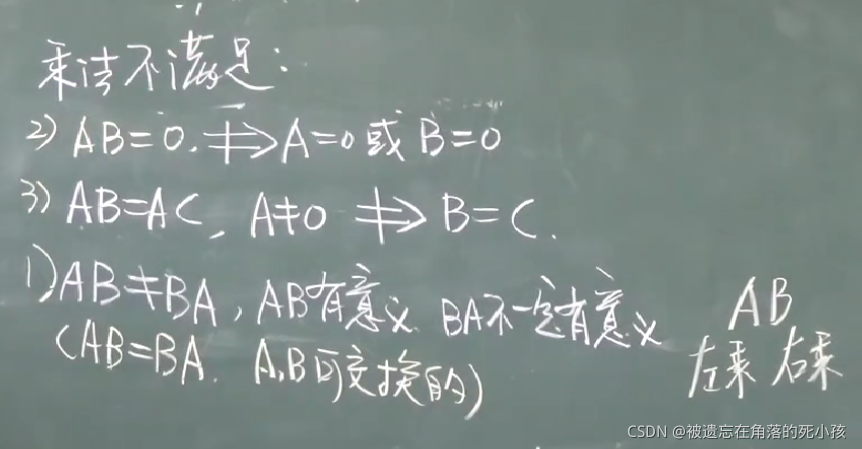 乘法不满足:
2) AB=0. ⇏ A=0 或 B=0
3) AB=AC, A≠0 ⇏ B=C.
1) AB≠BA, AB有意义 BA不一定有意义
(AB=BA. A,B可交换的)
AB
左乘 右乘
CSDN @被遗忘在角落的死小孩